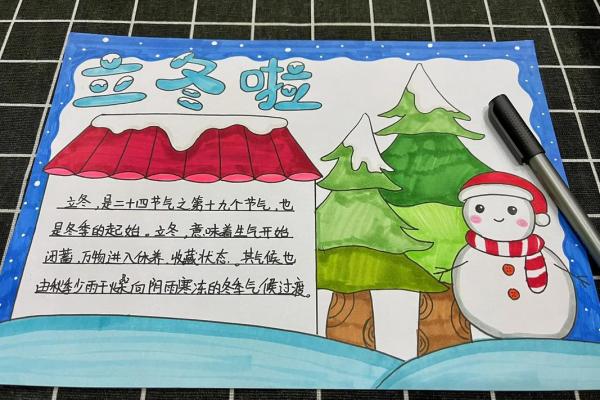 立冬啦
立冬,是二十四节气之第十九个节气,也
是冬季的起始。立冬,意味着生气开始
闭蓄,万物进入休养、收藏状态。其气候也
由秋季少雨干燥向阴雨寒冻的冬季气候过渡。